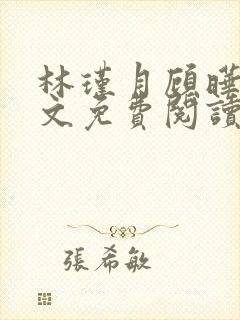 林瑾自顧曄
文免費閱讀
張希敏